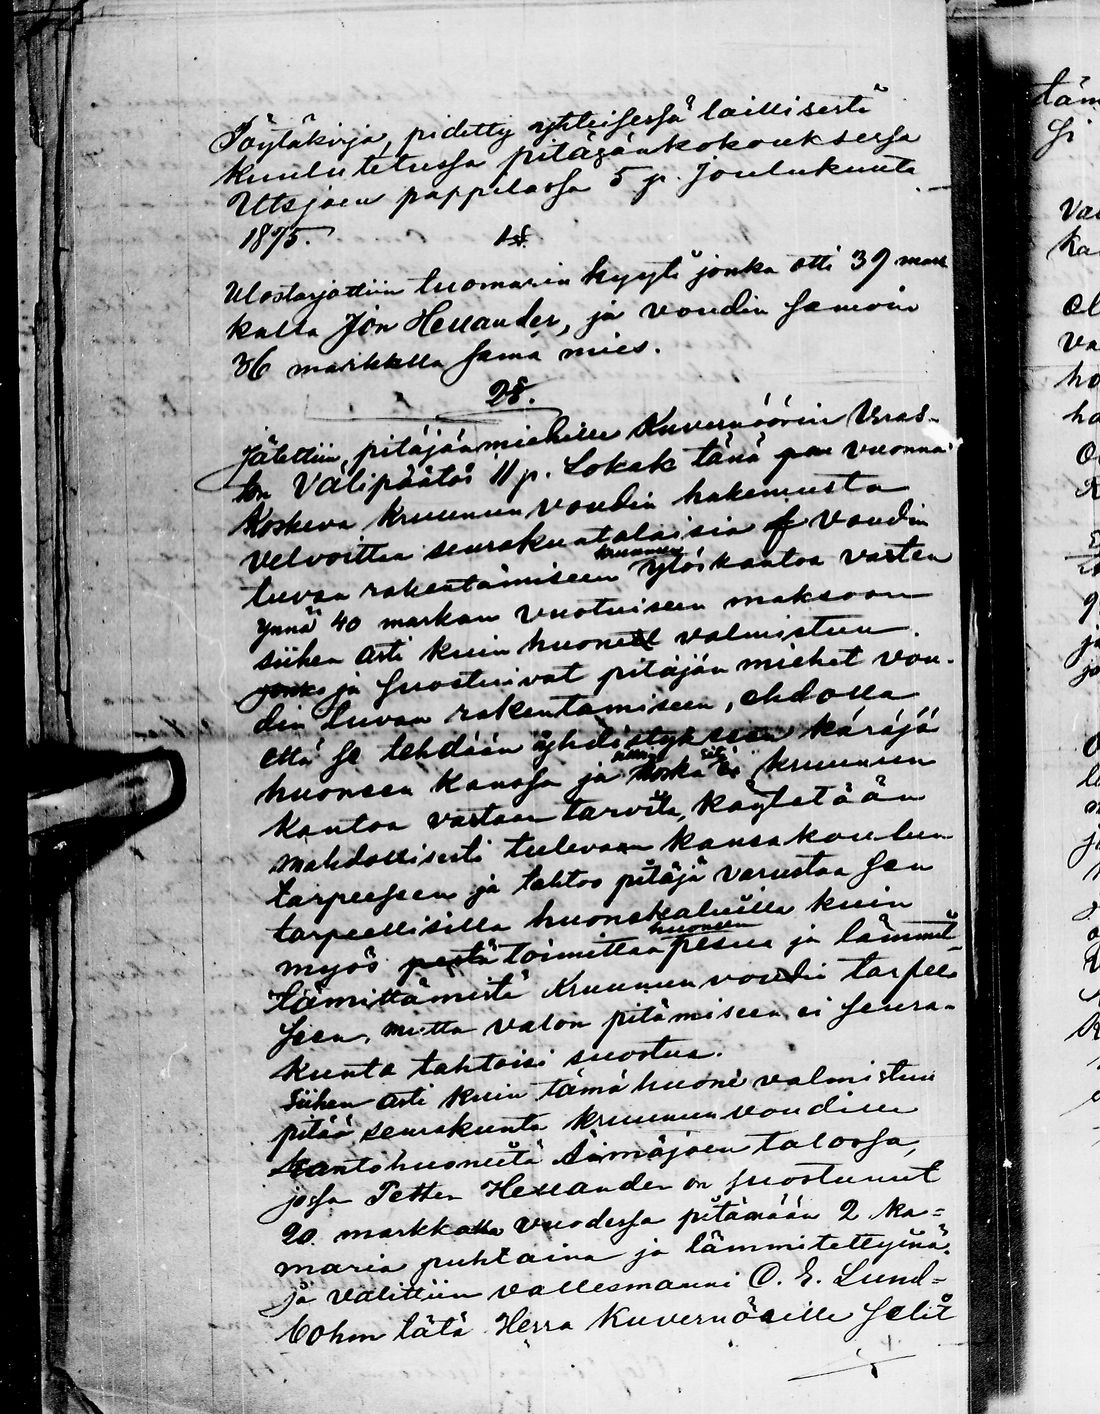 Pöytäkirja, pidetty yhteisessä laillisesti
kuulutetussa pitäjänkokouksessa
Utsjoen pappilassa 5 p. Joulukuuta
1875. 1 §.
Ulostarjottiin tuomarin kyyti jonka otti 39 mark
kalla Jon Hellander, ja voudin samoin
36 markkalla sama mies.
2 §.
Jätettiin pitäjänmiehille Kuvernöörin Viras-
ton Välipäätös 11 p. Lokak tänä vuonna
Koskeva Kruunun voudin hakemusta
velvoittaa seurakuntalaisia voudin
tuvan rakentamiseen kruunun ylöskantoa varten
ynnä 40 markan vuotuiseen maksoon
siihen asti kuin huoneet valmistuu.
ja suostuivat pitäjän miehet vou-
din tuvan rakentamiseen, ehdolla
että se tehdään yhdistykseen käräjä
huonsen kanssa ja koska ei kruunun
kantoa vastaan tarvita, käytetään
mahdollisesti tulevaan kansakoulun
tarpeesen ja tahtoo pitäjä varustaa sen
tarpeellisilla huonekaluilla kuin
myös toimittaa huoneen pesua ja lämmit-
tämittämistä Kruunun voudin tarpee
seen, mutta valon pitämiseen ei seura-
kunta tahtoisi suostua.
Siihen asti kuin tämä huone valmistuu
pitää seurakunta kruununvoudille
kantohuoneita talossa,
jossa Petter Hellander on suostunut
20 markkalla vuodessa pitämään 2 ka=
maria puhtaina ja lämmitettyinä.
ja valittiin vallesmanni O. E. Lund=
bohm tätä Herra Kuvernöörille selit